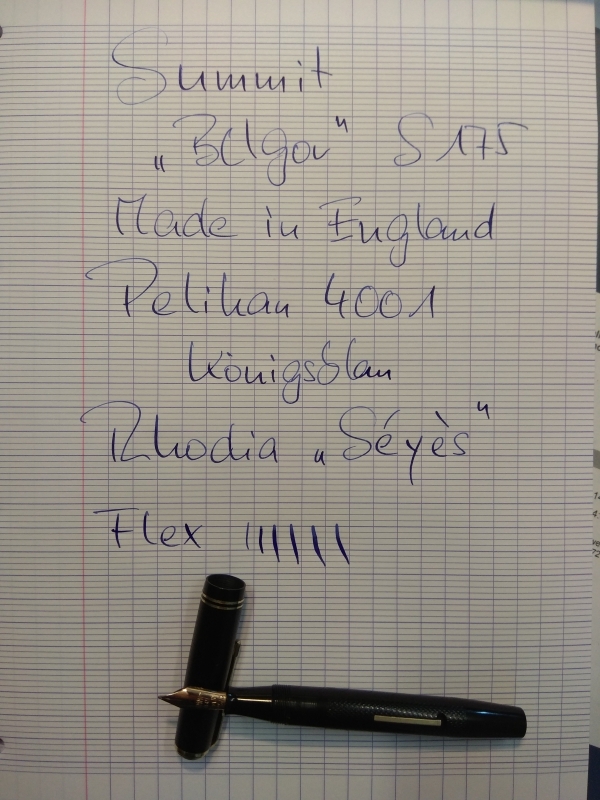 Summit
„Belgor" S 175
Made in England
Pelikan 4001
Königsblau
Rhodia „Séyès"
Flex